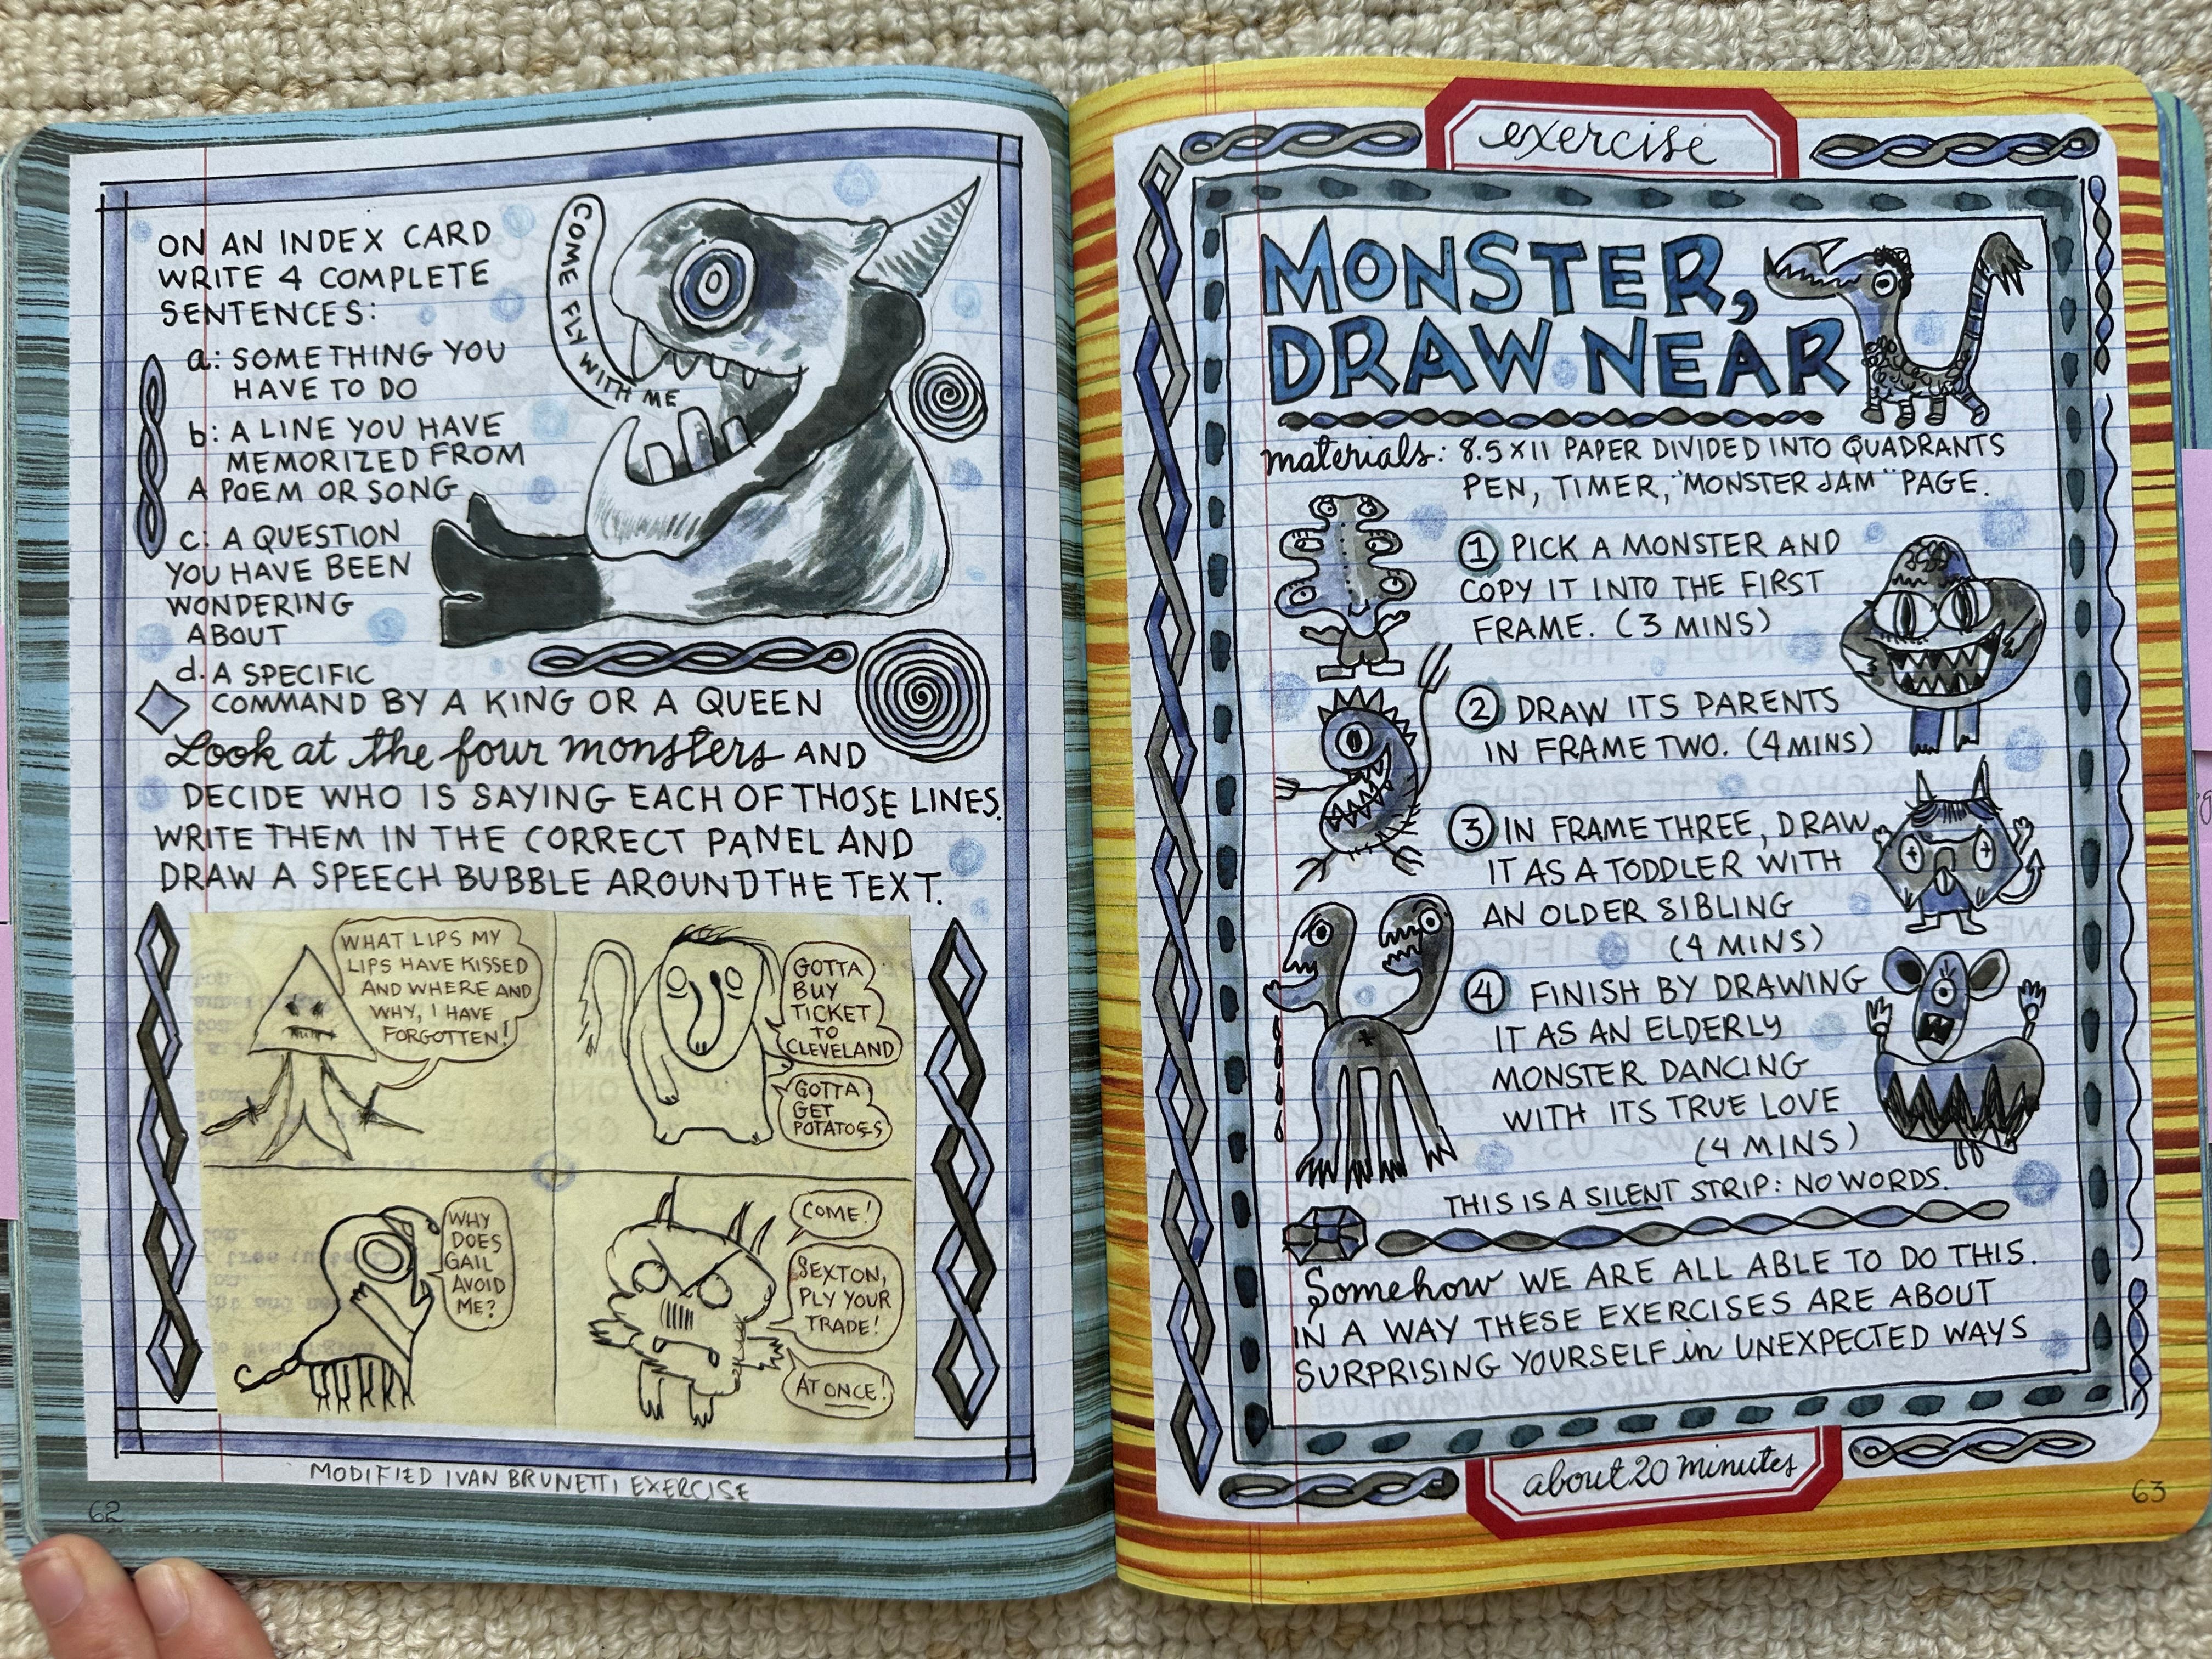 ON AN INDEX CARD
WRITE 4 COMPLETE
SENTENCES:
a: SOMETHING YOU
HAVE TO DO
b: A LINE YOU HAVE
MEMORIZED FROM
A POEM OR SONG
c: A QUESTION
YOU HAVE BEEN
WONDERING
ABOUT
d. A SPECIFIC
COMMAND BY A KING OR A QUEEN
COME FLY WITH ME
Look at the four monsters AND
DECIDE WHO IS SAYING EACH OF THOSE LINES.
WRITE THEM IN THE CORRECT PANEL AND
DRAW A SPEECH BUBBLE AROUND THE TEXT.
WHAT LIPS MY
LIPS HAVE KISSED
AND WHERE AND
WHY, I HAVE
FORGOTTEN!
GOTTA
BUY
TICKET
TO
CLEVELAND
GOTTA
GET
POTATOES
WHY
DOES
GAIL
AVOID
ME?
COME!
SEXTON,
PLY YOUR
TRADE!
AT ONCE!
MODIFIED IVAN BRUNETTI EXERCISE
62
exercise
MONSTER,
DRAW NEAR
materials: 8.5 X 11 PAPER DIVIDED INTO QUADRANTS
PEN, TIMER, "MONSTER JAM" PAGE.
1 PICK A MONSTER AND
COPY IT INTO THE FIRST
FRAME. (3 MINS)
2 DRAW ITS PARENTS
IN FRAME TWO. (4 MINS)
3 IN FRAME THREE, DRAW
IT AS A TODDLER WITH
AN OLDER SIBLING
(4 MINS)
4 FINISH BY DRAWING
IT AS AN ELDERLY
MONSTER DANCING
WITH ITS TRUE LOVE
(4 MINS)
THIS IS A SILENT STRIP: NO WORDS.
Somehow WE ARE ALL ABLE TO DO THIS.
IN A WAY THESE EXERCISES ARE ABOUT
SURPRISING YOURSELF in UNEXPECTED WAYS
about 20 minutes
63